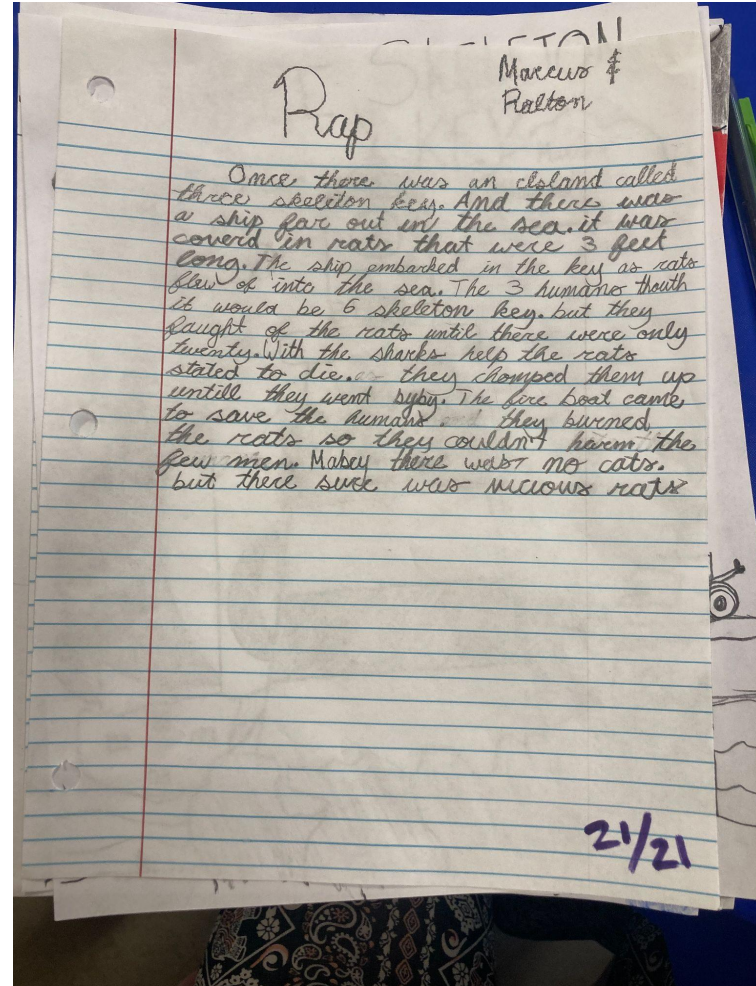 SKELETON
Marcus &
Ralton
Rap
Once there was an island called
three skeleton key. And there was
a ship far out in the sea. it was
coverd in rats that were 3 feet
long. The ship embarked in the key as rats
flew of into the sea. The 3 humans thouth
it would be 6 skeleton key. but they
faught of the rats until there were only
twenty. With the sharks help the rats
stated to die. they chomped them up
untill they went byby. The fire boat came
to save the humans and they burned
the rats so they couldn't harm the
few men. Mabey there was no cats.
but there sure was vicious rats
21/21